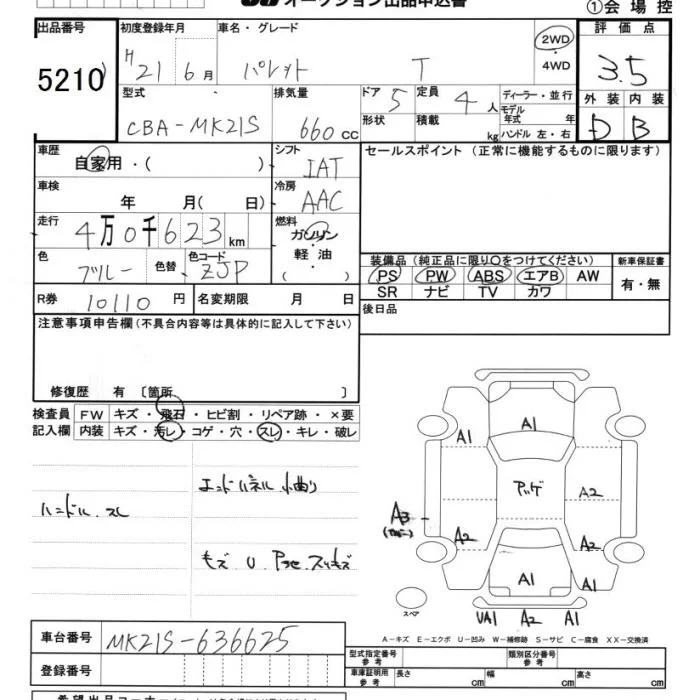 オークション出品申込書
①会場控
出品番号 初度登録年月 車名・グレード 評価点
5210 H 21 6月 パレット T 2WD・4WD 3.5
型式 排気量 ドア 定員 ディーラー・並行 外装 内装
CBA-MK21S 660cc 5 4人 モデル年式 年 D B
形状 積載 kg ハンドル 左・右
車歴 シフト セールスポイント（正常に機能するものに限ります）
自家用・（ ） IAT
車検 冷房
年 月（ 日） AAC
走行 燃料
4万0千623km ガソリン・軽油・（ ）
色 色替 色コード 装備品（純正品に限り○をつけてください） 新車保証書
ブルー ZJP PS PW ABS エアB AW 有・無
SR ナビ TV カワ
R券 10110円 名変期限 月 日 後日品
注意事項申告欄（不具合内容等は具体的に記入して下さい）
修復歴 有 〔箇所 〕
検査員 FW キズ・飛石・ヒビ割・リペア跡・×要
記入欄 内装 キズ・汚レ・コゲ・穴・スレ・キレ・破レ
エンドパネル 小曲り
ハンドル スレ
キズ U
A1
A1
アッゲ A2
A3
A2 A2
A1 A1
スペア UA1 A2 A1
A－キズ E－エクボ U－凹み W－補修跡 S－サビ C－腐食 XX－交換済
車台番号 MK21S-636625
型式指定番号 参考 類別区分番号 参考
登録番号
車庫証明用 参考 長さ cm 幅 cm 高さ cm
希望出品コーナー